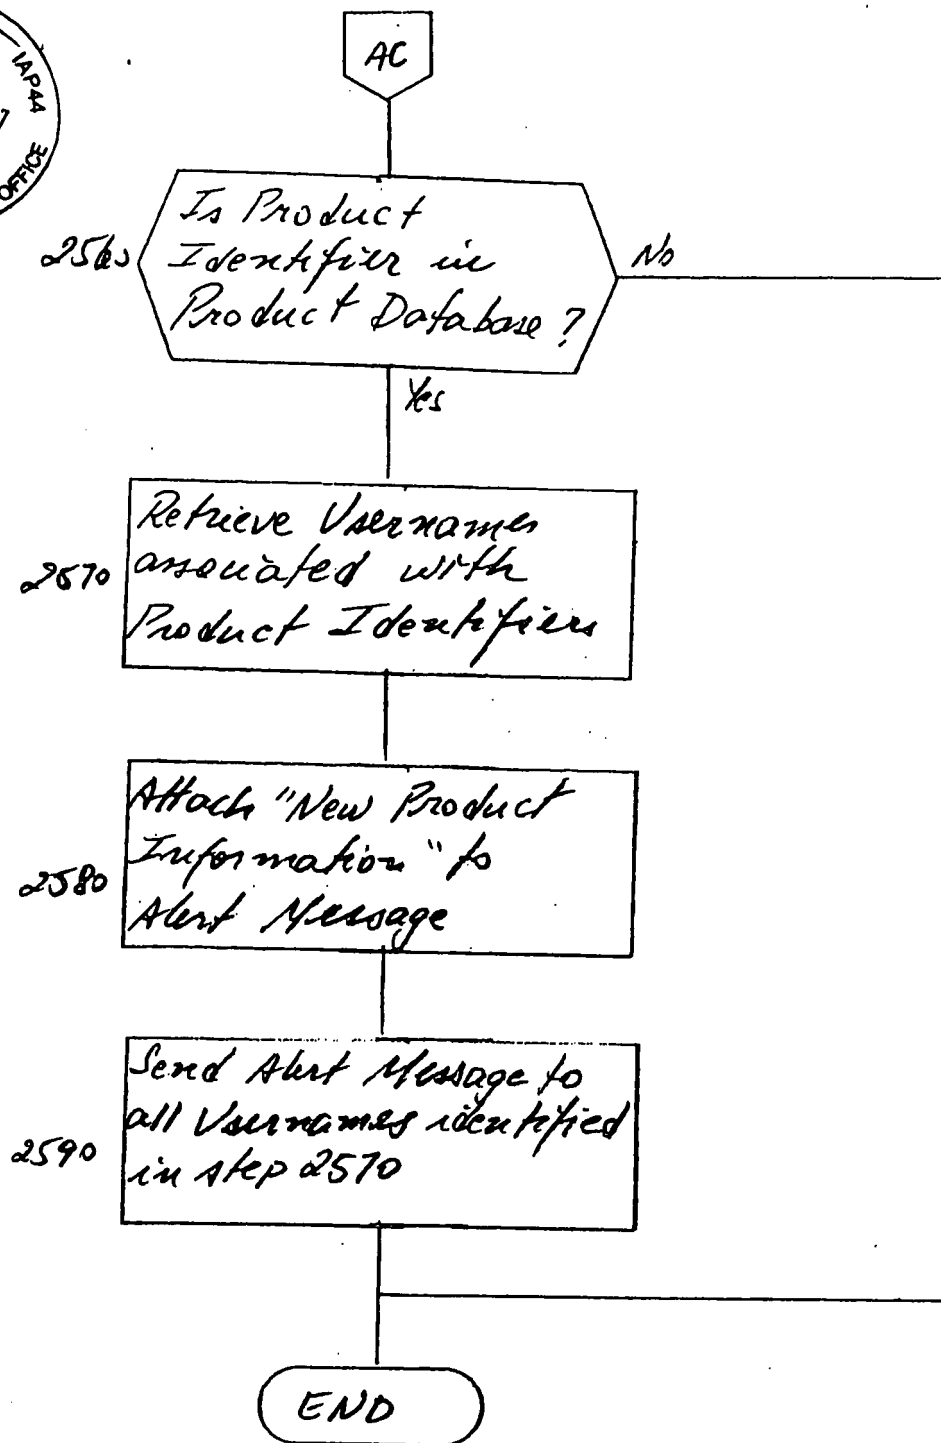 IAP44
OFFICE
AC
Is Product
Identifier in
Product Database?
2560
No
Yes
Retrieve Usernames
associated with
Product Identifiers
2570
Attach "New Product
Information" to
Alert Message
2580
Send Alert Message to
all Usernames identified
in step 2570
2590
END